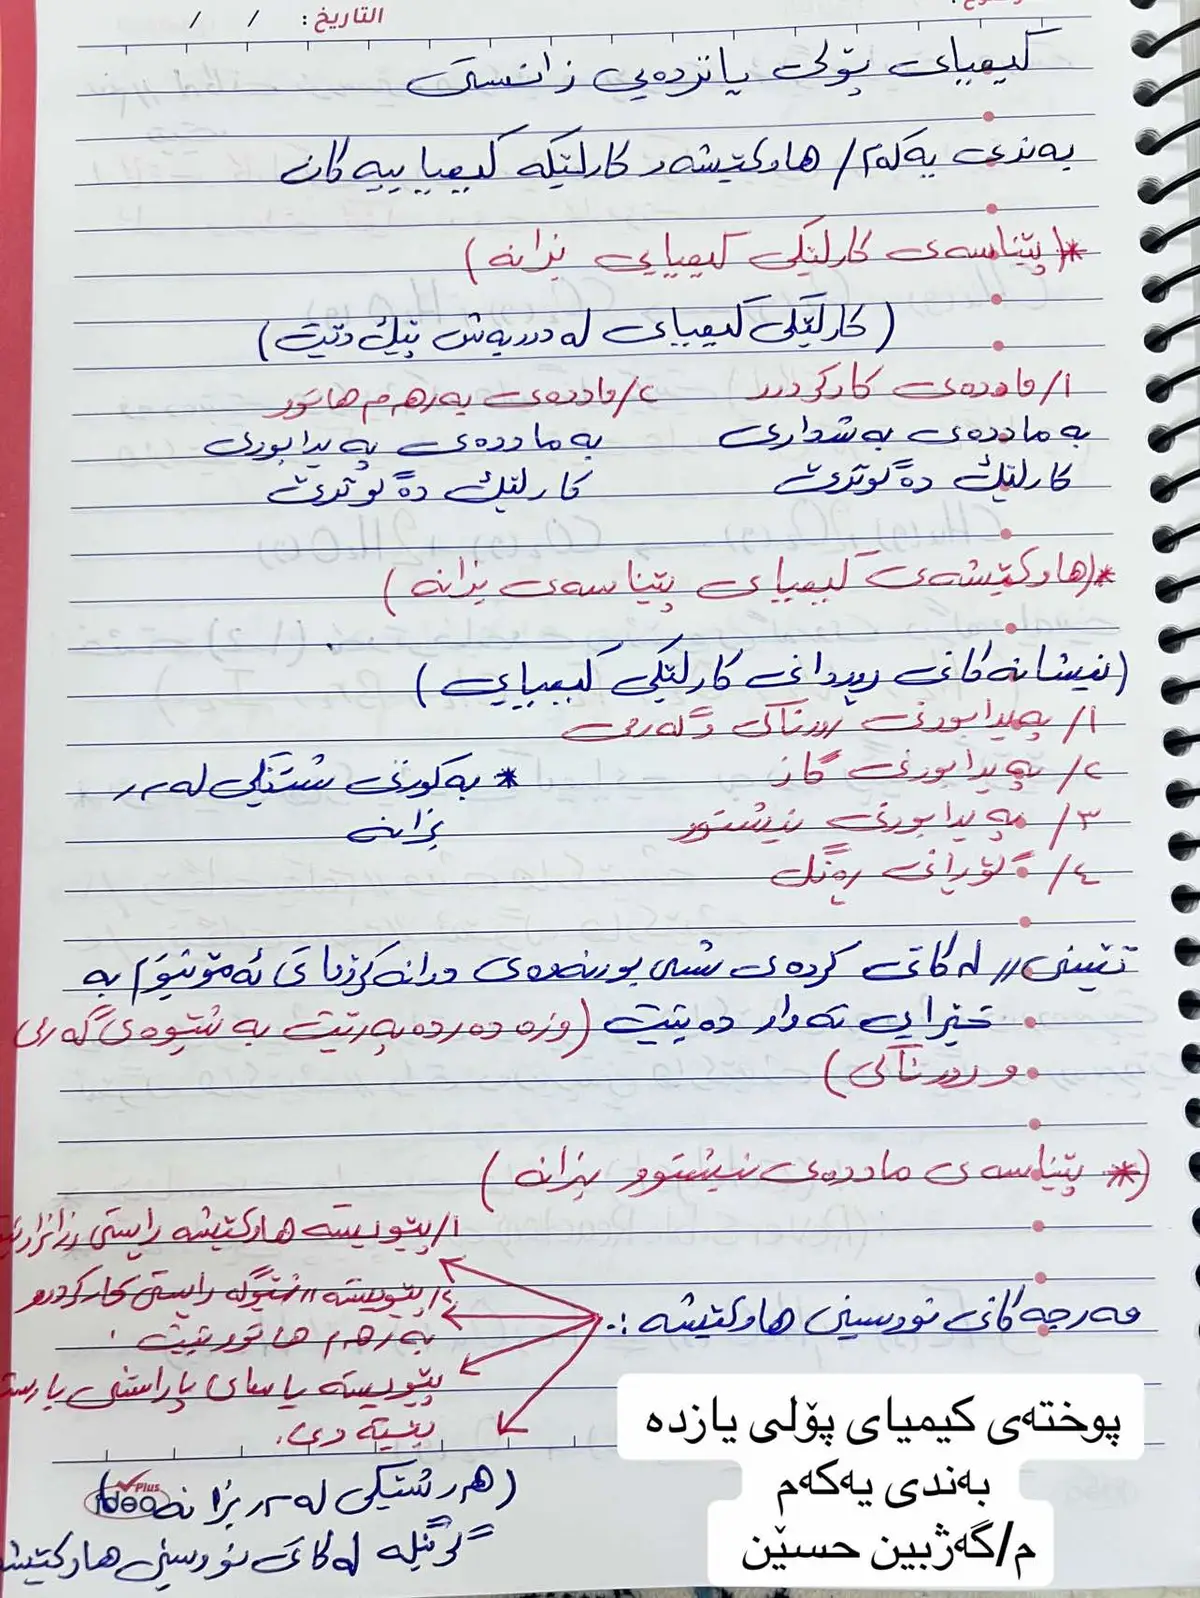 التاريخ : / /
كیمیای پۆلی یانزدەیی زانستی
بەندی یەکەم / هاوکێشەو کارلێکە کیمیاییەکان
*( پێناسەی کارلێکی کیمیایی بزانە )
( کارلێکی کیمیای لە دوو بەش پێك دێت )
١/ ماددەی کارکردوو
٢/ ماددەی بەرهەم هاتوو
بە ماددەی بەشداری
بە ماددەی پەیدابوری
کارلێك دەگوترێ
کارلێك دەگوترێ
*( هاوکێشەی کیمیای پێناسەی بزانە )
( نیشانەکانی ڕوودانی کارلێکی کیمیایی )
١/ پەیدابوونی رووناکی و گەرمی
٢/ پەیدابوونی گاز
* بەکورتی شتێکی لەسەر
٣/ پەیدابوونی نیشتوو
بزانە
٤/ گۆرانی رەنگ
تێبینی // لە کاتی کردەی شی بوونەوەی دوانەکرۆماتی ئەمۆنیۆم بە
خێرایی تەواو دەبێت ( وزە دەردەپەرێت بە شێوەی گەرمی
و رووناکی )
( * پێناسەی ماددەی نیشتوو بزانە )
مەرجەکانی نووسینی هاوکێشە :.
١/ پێویستە هاوکێشە راستی
٢/ پێویستە // شێوگە راستی کارکردوو
بەرهەم هاتوو بێت .
پێویستە یاسای پاراستنی بارستە
بێتە دی .
( هەر شتێکی لەسەر بزانە )
گرنگە لە کاتی نووسینی هاوکێشە
Plus
idea
پوختەی کیمیای پۆلی یازدە
بەندی یەکەم
م/گەژبین حسێن